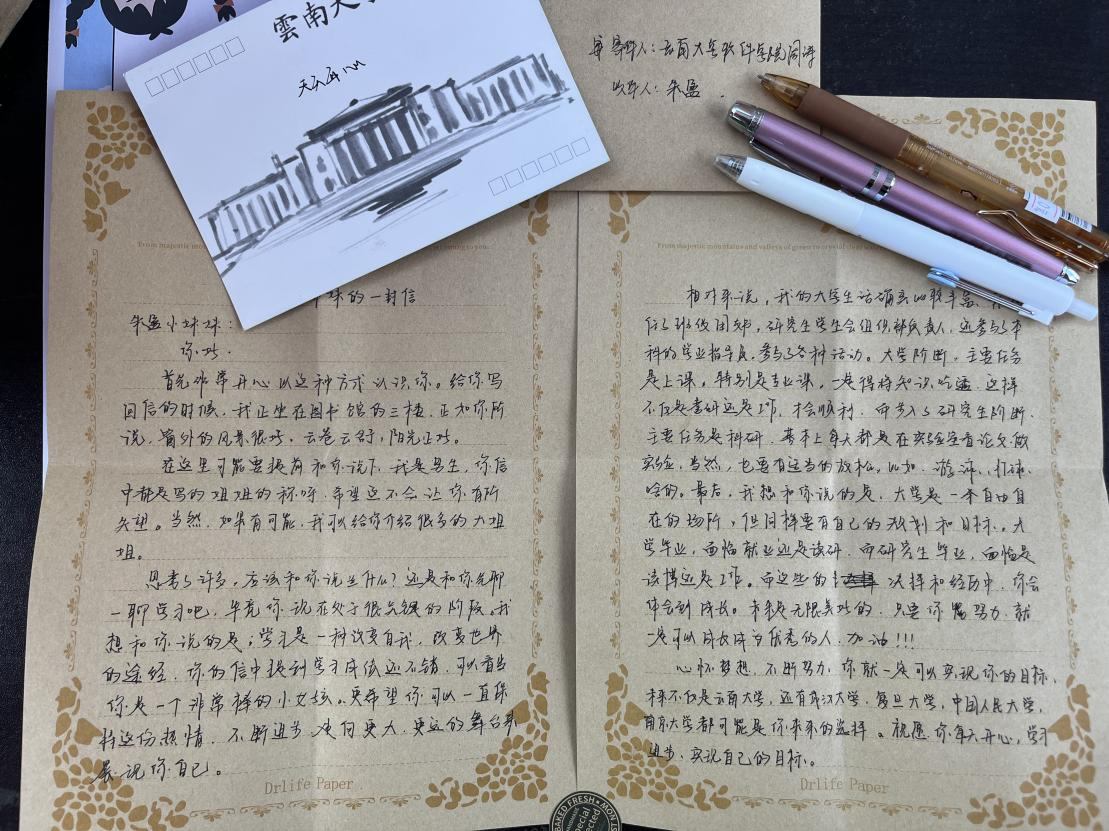 雲南大
天天开心
寄件人：云南大学软件学院
收件人：朱孟
妹的一封信
朱孟小妹妹：
你好.
首先非常开心以这种方式认识你。给你写
回信的时候，我正坐在图书馆的三楼，正如你所
说，窗外的风景很好，云卷云舒，阳光正好。
在这里可能要提前和你说下，我是男生，你信
中都是写的姐姐的称呼，希望这不会让你有所
失望。当然，如果有可能，我可以给你介绍很多的大姐
姐。
思考了许多，应该和你说些什么？还是和你先聊
一聊学习吧，毕竟你现在处于很关键的阶段。我
想和你说的是：学习是一种改变自我，改变世界
的途径，你的信中提到学习成绩还不错，可以看出
你是一个非常棒的小女孩。更希望你可以一直保
持这份热情，不断进步，走向更大、更远的舞台来
展现你自己。
Drlife Paper
From majestic mountains and valleys of green to crystal clear
相对来说，我的大学生活确实比较丰富，
任了班级团支书，研究生学生会组织部负责人，还参与了本
科的学业指导员，参与了各种活动。大学阶段，主要任务
是上课，特别是专业课，一定得将知识吃透，这样
不仅是考研还是工作，才会顺利，而步入了研究生阶段，
主要任务是科研，基本上每天都是在实验室看论文，做
实验，当然，也要有适当的放松，比如，游泳、打球
啥的。最后，我想和你说的是，大学是一个自由自
在的场所，但同样要有自己的规划和目标。大
学毕业，面临就业还是读研，而研究生毕业，面临是
读博还是工作。而这些的选择和经历中，你会
体会到成长。未来是无限美好的，只要你努力，就
一定可以成长成为优秀的人，加油！！！
心怀梦想，不断努力，你就一定可以实现你的目标，
未来不仅是云南大学，还有武汉大学，复旦大学，中国人民大学，
南京大学都可能是你未来的选择。祝愿你每天开心，学习
进步，实现自己的目标。
Drlife Paper
BAKED FRESH